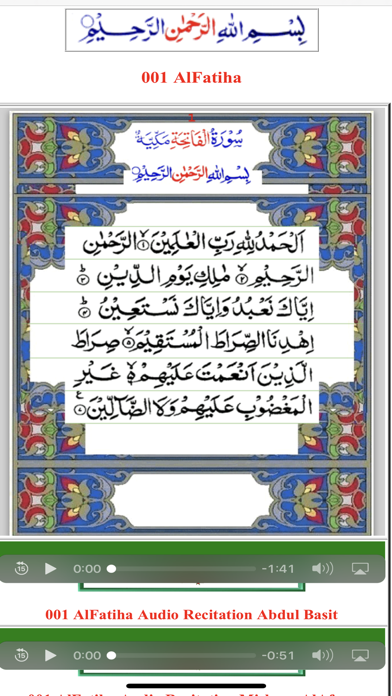 بِسْمِ اللهِ الرَّحْمٰنِ الرَّحِيْمِ
001 AlFatiha
سُوْرَةُ الْفَاتِحَةِ مَكِّيَّةٌ
بِسْمِ اللهِ الرَّحْمٰنِ الرَّحِيْمِ
اَلْحَمْدُ لِلّٰهِ رَبِّ الْعٰلَمِيْنَ ۙ﴿۱﴾ الرَّحْمٰنِ
الرَّحِيْمِ ۙ﴿۲﴾ مٰلِكِ يَوْمِ الدِّيْنِ ؕ﴿۳﴾
اِيَّاكَ نَعْبُدُ وَاِيَّاكَ نَسْتَعِيْنُ ؕ﴿۴﴾
اِهْدِنَا الصِّرَاطَ الْمُسْتَقِيْمَ ۙ﴿۵﴾ صِرَاطَ
الَّذِيْنَ اَنْعَمْتَ عَلَيْهِمْ ۙ﴿۶﴾ غَيْرِ
الْمَغْضُوْبِ عَلَيْهِمْ وَلَا الضَّآلِّيْنَ ﴿۷﴾
15 0:00 -1:41
001 AlFatiha Audio Recitation Abdul Basit
15 0:00 -0:51
001 AlFatiha Audio Recitation